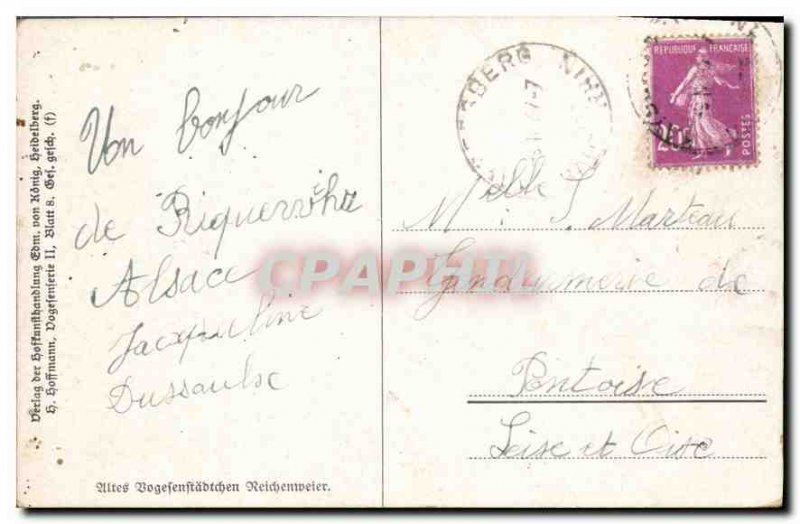 Verlag der Hofkunsthandlung Edm. von König, Heidelberg.
H. Hoffmann, Vogesenserie II, Blatt 8. Ges. gesch. (f)
Un bonjour
de Riquewihr
Alsace
Jacqueline
Dussaulse
Altes Vogesenstädtchen Reichenweier.
REPUBLIQUE FRANÇAISE
POSTES
Melle S. Marteau
Gendarmerie de
Pontoise
Seise et Oise
CPAPHIL